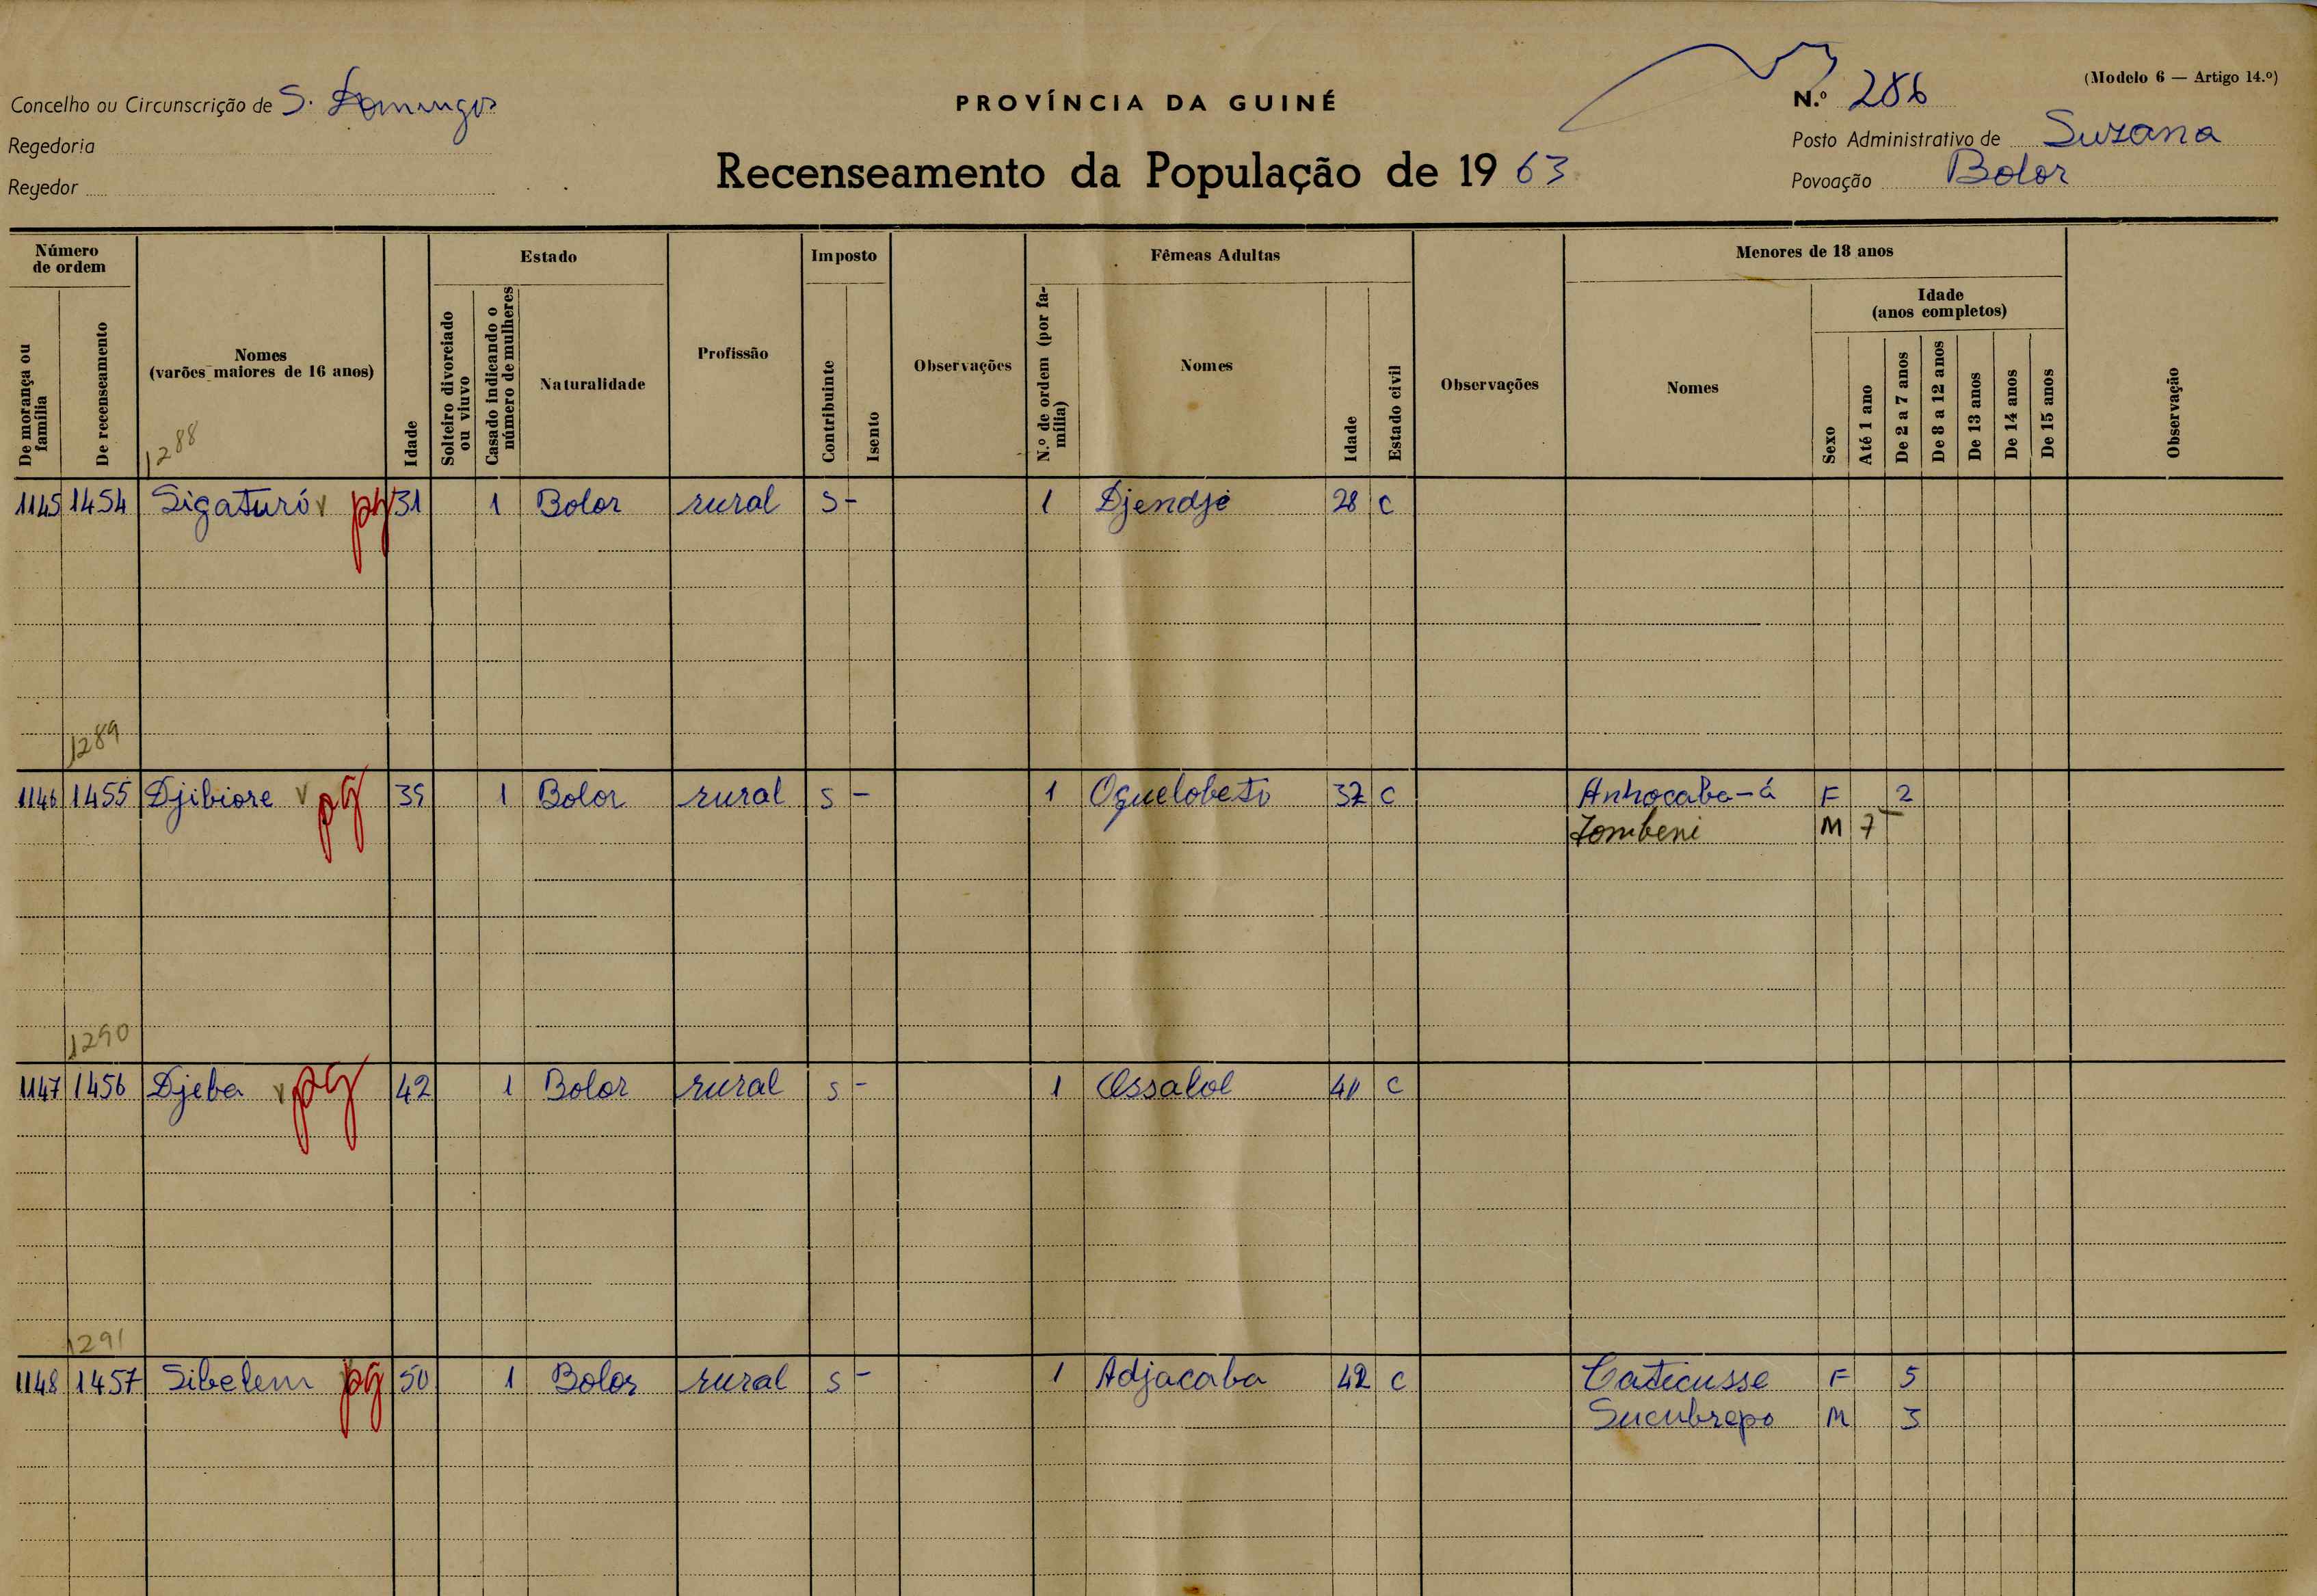 Concelho ou Circunscrição de S. Domingos
PROVÍNCIA DA GUINÉ
N.º 286
(Modelo 6 — Artigo 14.º)
Regedoria
Posto Administrativo de Suzana
Regedor
Recenseamento da População de 1963
Povoação Bolor
Número de ordem
De morança ou família
De recenseamento
Nomes (varões maiores de 16 anos)
Idade
Estado
Solteiro divorciado ou viuvo
Casado indicando o número de mulheres
Naturalidade
Profissão
Imposto
Contribuinte
Isento
Observações
Fêmeas Adultas
N.º de ordem (por família)
Nomes
Idade
Estado civil
Observações
Menores de 18 anos
Nomes
Sexo
Idade (anos completos)
Até 1 ano
De 2 a 7 anos
De 8 a 12 anos
De 13 anos
De 14 anos
De 15 anos
Observação
1288
1145 1454 Sigaturó v pg 31 1 Bolor rural S - 1 Djendje 28 C
1289
1146 1455 Djibiore v pg 39 1 Bolor rural S - 1 Oquelobeto 32 C Anhocaba-á F 2
Zombeni M 7
1290
1147 1456 Djeba v pg 42 1 Bolor rural S - 1 Assalol 40 C
1291
1148 1457 Sibelem pg 50 1 Bolor rural S - 1 Adjacaba 42 C Caticusse F 5
Sucubrepo M 3